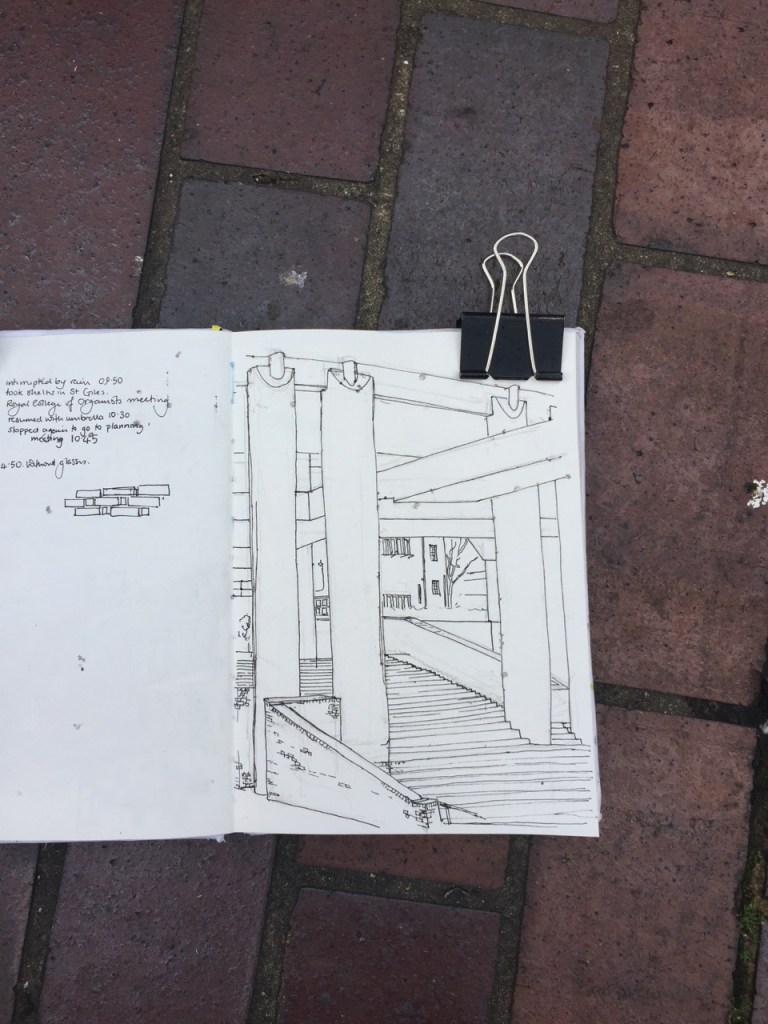 interrupted by rain 09.50
took shelter in St Giles.
Royal College of Organists meeting
resumed with umbrella 10.30
stopped again to go to planning
meeting 10.45
4.50. without glasses.